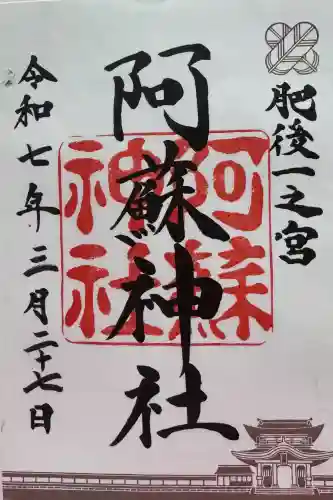 肥後一之宮
阿蘇神社
令和七年三月二十七日
阿蘇
神社